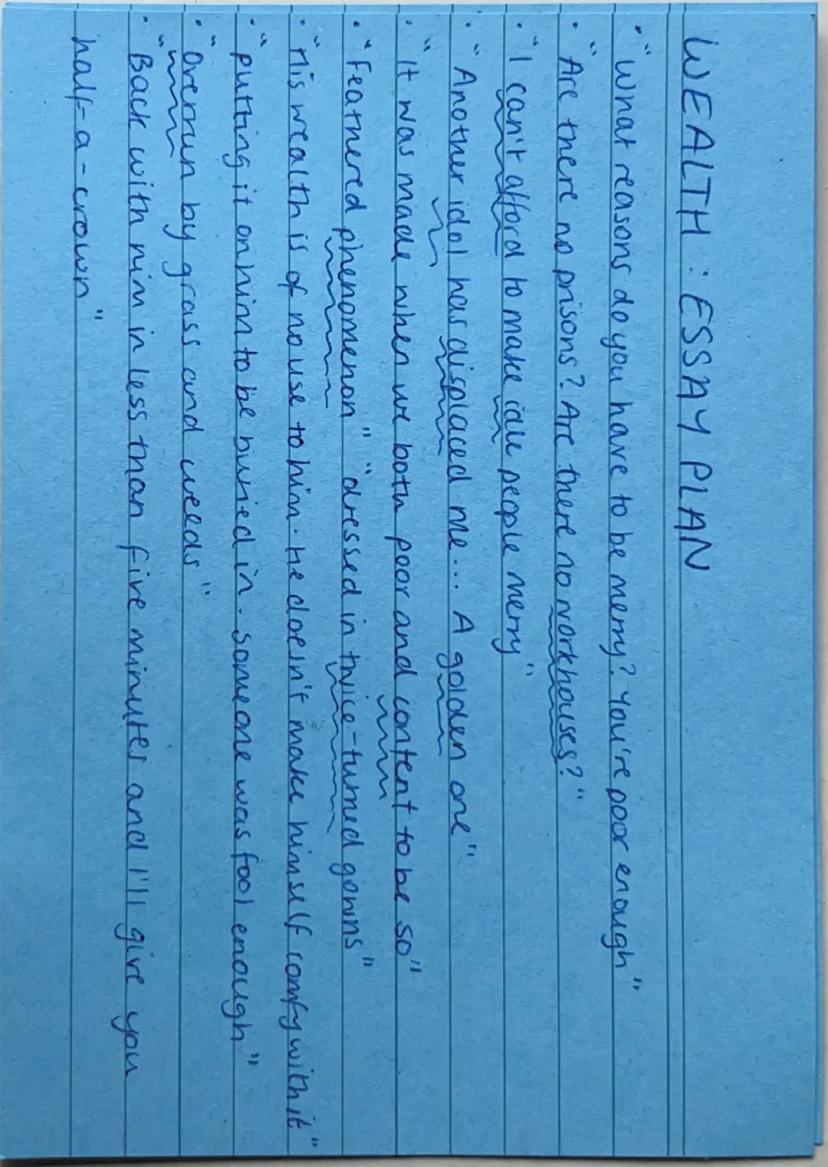 WEALTH : ESSAY PLAN
· "What reasons do you have to be merry? You're poor enough"
· "Are there no prisons? Are there no workhouses?"
· "I can't afford to make idle people merry"
· "Another idol has displaced me... A golden one"
· "It was made when we both poor and content to be so"
· "Feathered phenomenon" "dressed in twice-turned gowns"
· "His wealth is of no use to him. He doesn't make himself comfy with it"
· "putting it on him to be buried in. someone was fool enough"
· "Overrun by grass and weeds"
· "Back with him in less than five minutes and I'll give you
half-a-crown"